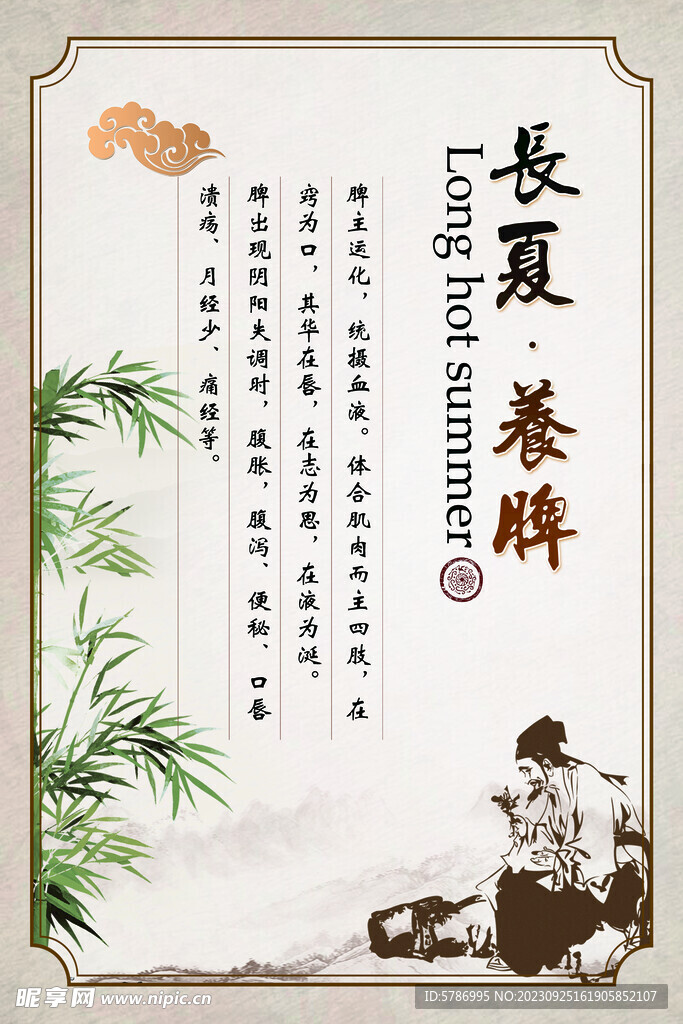 長夏·養脾
Long hot summer
脾主运化，统摄血液。体合肌肉而主四肢，在
窍为口，其华在唇，在志为思，在液为涎。
脾出现阴阳失调时，腹胀，腹泻、便秘、口唇
溃疡、月经少、痛经等。
昵享网 www.nipic.cn
ID:5786995 NO:20230925161905852107